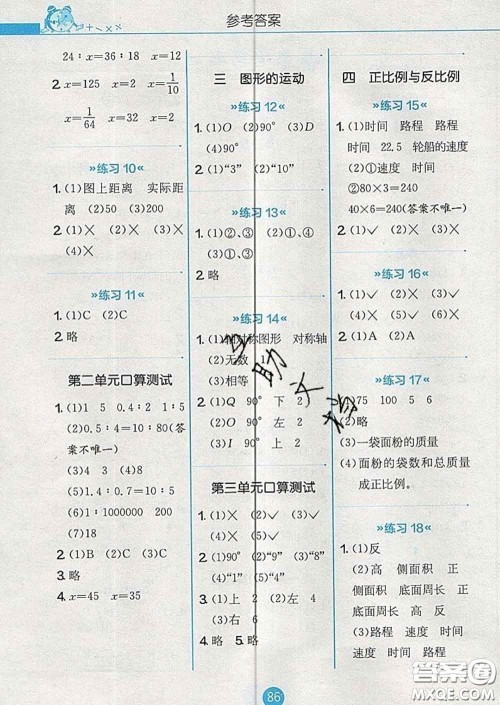 参考答案
24∶x=36∶18 x=12
2. x=125 x=2 x=1/10
x=1/64 x=32 x=2
»练习 10«
1. (1)图上距离 实际距
离 (2)50 (3)200
2. (1)× (2)× (3)✓
(4)×
»练习 11«
1. (1)C (2)C
2. 略
第二单元口算测试
1. (1)1 5 0.4∶2 1∶5
(2)0.5∶4=10∶80(答
案不唯一)
(3)4 3 (4)8
(5)1.4∶0.7=110∶
(6)1∶1000000 200
(7)18
2. (1)B (2)C (3)C
3. 略
4. x=45 x=35
三 图形的运动
»练习 12«
1. (1)O (2)90° (3)D
(4)90°
2. (1)“3” (2)“10”
»练习 13«
1. (1)②、③ (2)①、③
(3)①、④
2. 略
»练习 14«
1. (1)轴对称图形 对称轴
(2)无数 1
(3)相等
2. (1)Q 90° 下 2
(2)O 90° 左 2
(3)I 90° 上 2
第三单元口算测试
1. (1)× (2)✓ (3)×
2. (1)90° (2)“9” (3)“8”
(4)“1” (5)“4”
3. (1)上 2 (2)左 4
(3)右 6
4. 略 5. 略
四 正比例与反比例
»练习 15«
1. (1)时间 路程 路程
时间 22.5 轮船的速度
(2)①速度 时间
②80×3=240
40×6=240(答案不唯一)
2. (1)✓ (2)× (3)✓ (4)×
»练习 16«
1. (1)✓ (2)× (3)✓
(4)× (5)✓
2. (1)A (2)A
»练习 17«
1. (1)75 100 5 6
(2)略
(3)一袋面粉的质量
(4)面粉的袋数和总质量
成正比例。
»练习 18«
1. (1)反
(2)高 侧面积 正
侧面积 底面周长 正
底面周长 高 反
(3)路程 速度 时间
速度 时间 路程
86
答案圈
MXQE.COM